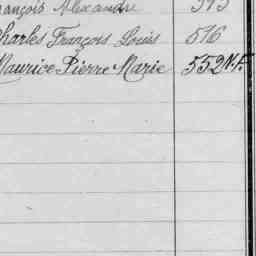 François Alexandre 595
Charles François Louis 516
Maurice Pierre Marie 552 N.F.